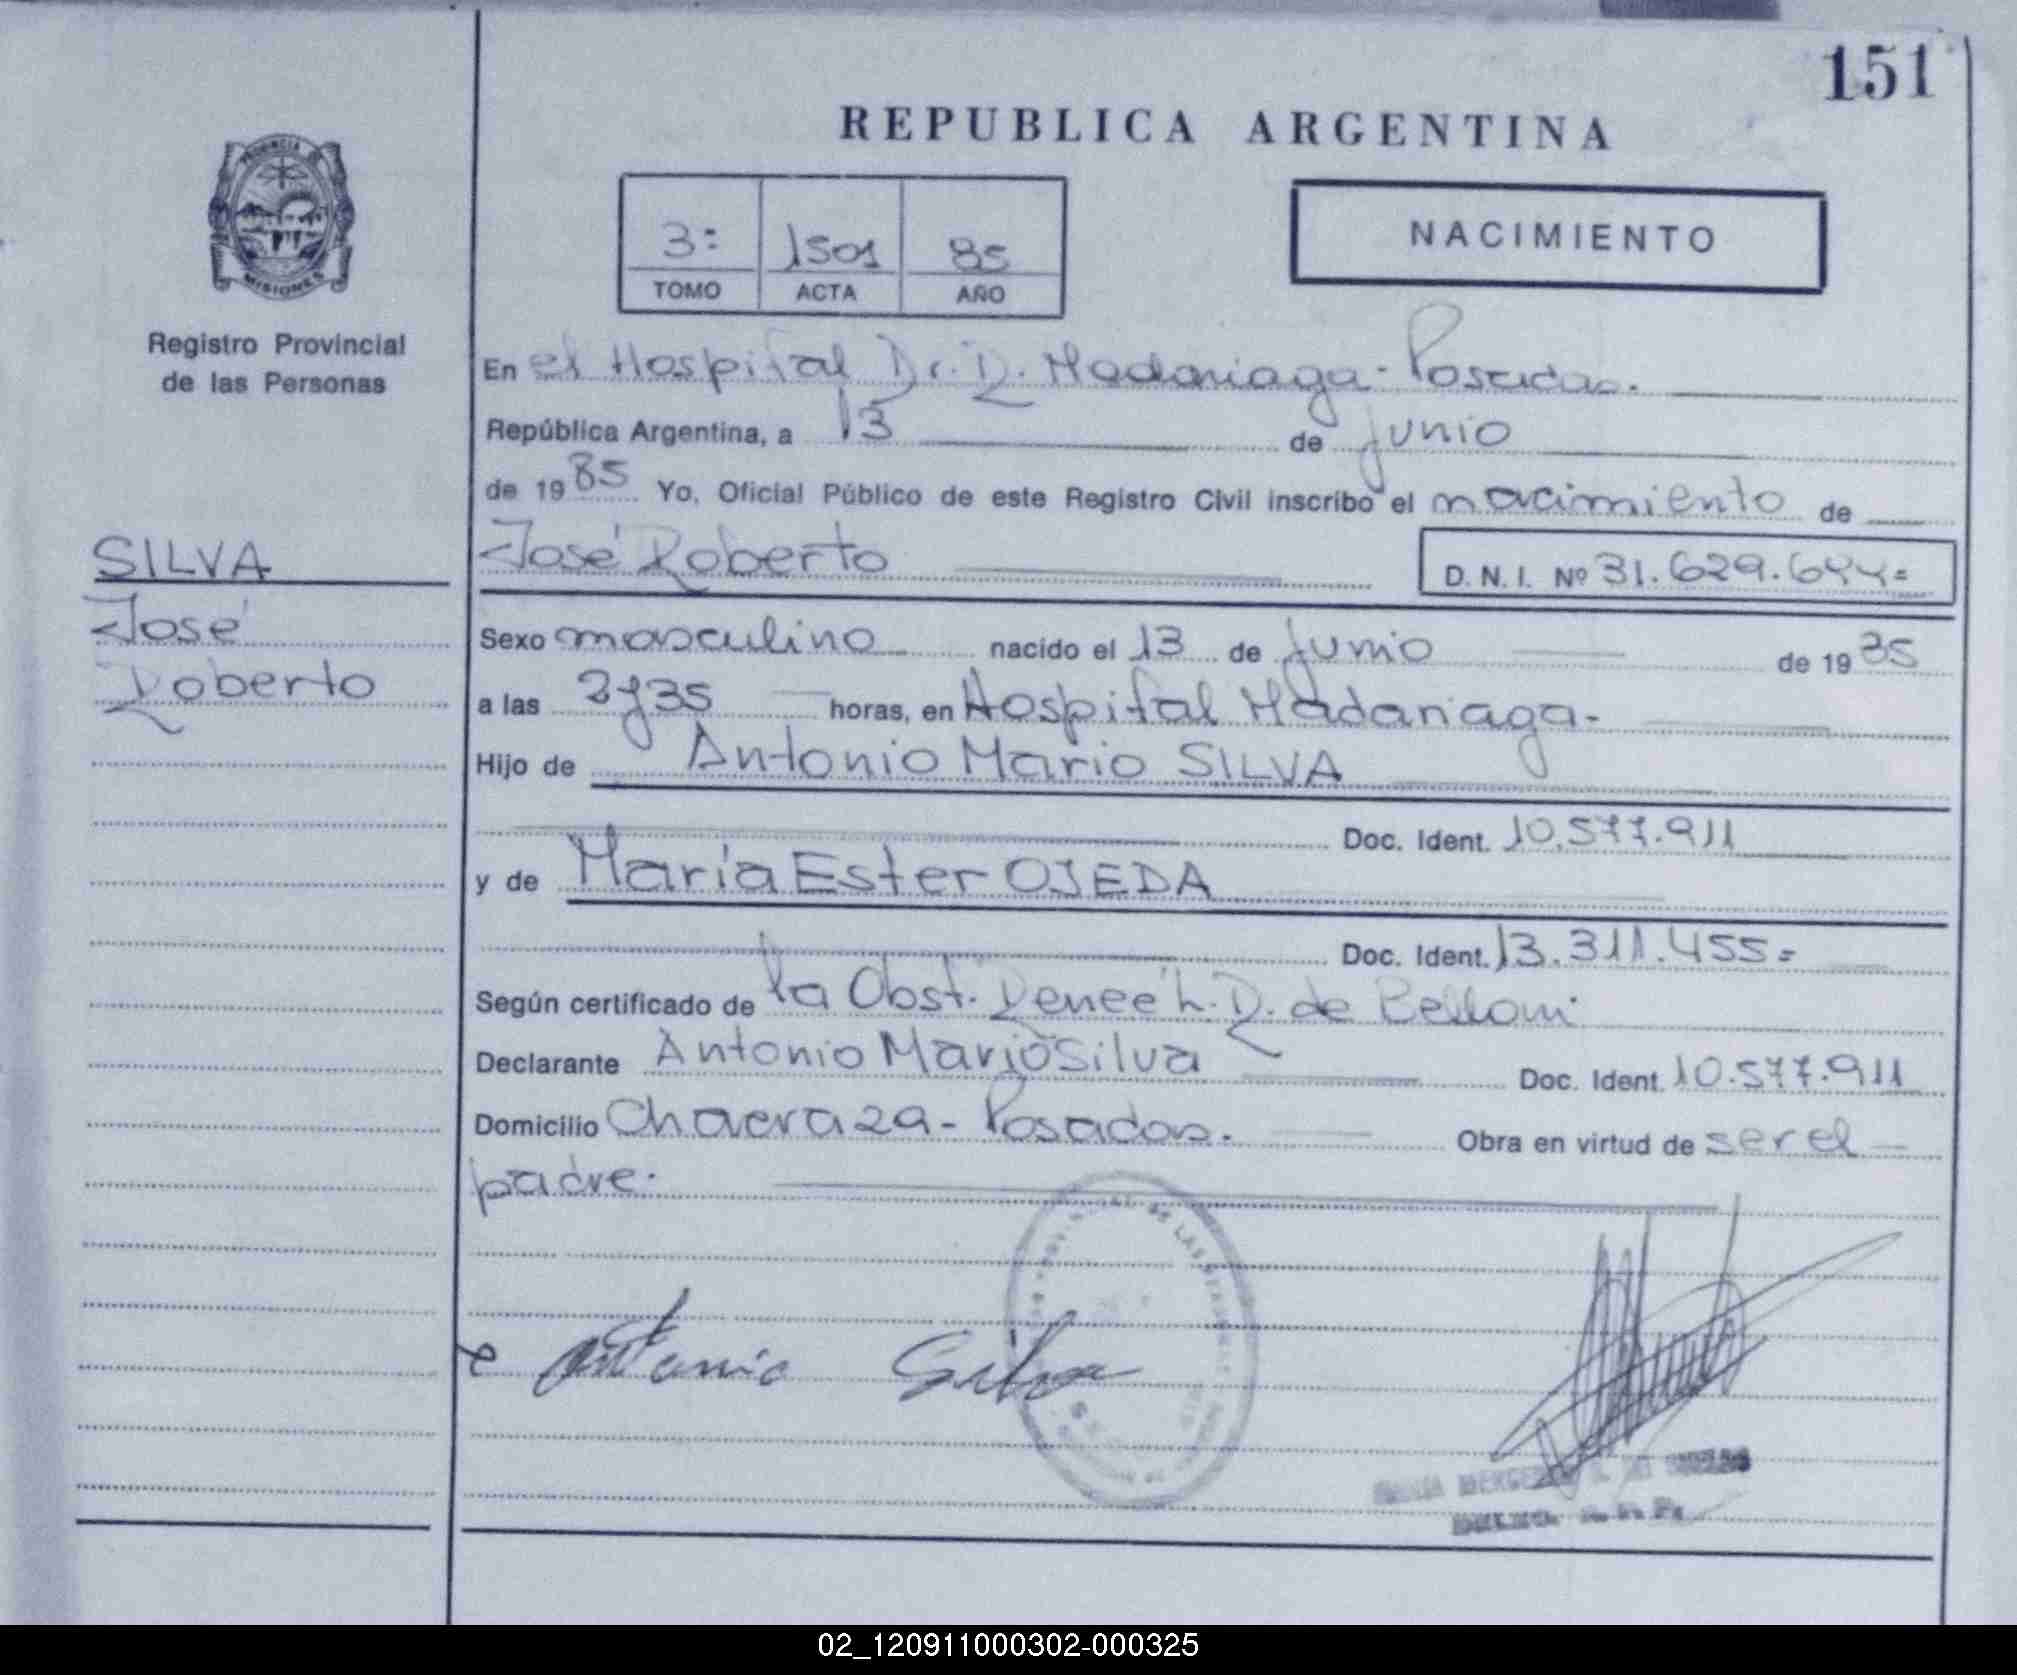 151
REPUBLICA ARGENTINA
PROVINCIA DE
MISIONES
Registro Provincial
de las Personas
3: 1501 85
TOMO ACTA AÑO
NACIMIENTO
En el Hospital Dr. R. Madariaga - Posadas.
República Argentina, a 13 de junio
de 1985 Yo, Oficial Público de este Registro Civil inscribo el nacimiento de
SILVA
José
Roberto
José Roberto D.N.I. Nº 31.629.644=
Sexo masculino nacido el 13 de junio de 1985
a las 2y35 horas, en Hospital Madariaga-
Hijo de Antonio Mario SILVA
Doc. Ident. 10.577.911
y de María Ester OJEDA
Doc. Ident. 13.311.455=
Según certificado de la Obst. Reneé L. R. de Belloni
Declarante Antonio Mario Silva Doc. Ident. 10.577.911
Domicilio Chacra 29 - Posadas. Obra en virtud de ser el
padre.
Antonio Silva
02_120911000302-000325